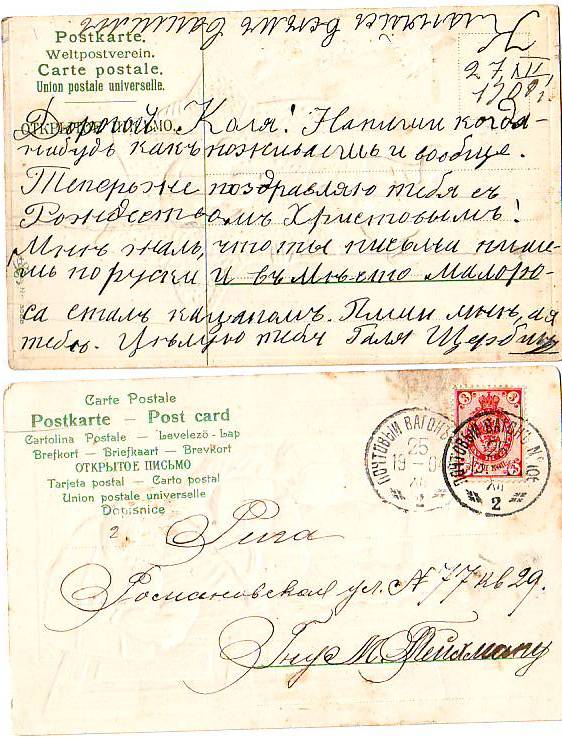 Кланяйся всѣмъ вашимъ
Postkarte.
Weltpostverein.
Carte postale.
Union postale universelle.
ОТКРЫТОЕ ПИСЬМО.
27 XII
Дорогой Коля! Напиши когда-
нибудь какъ поживаешь и вообще.
Теперь же поздравляю тебя съ
Рождествомъ Христовымъ!
Мнѣ жаль, что ты письма пише-
шь по руски и въ мѣсто малоро-
са сталъ кацапом. Пиши мнѣ, а я
тебѣ. Цѣлую тебя Галя
Carte Postale
Postkarte – Post card
Cartolina Postale – Levelező-Lap
Brefkort – Briefkaart – Brevkort
ОТКРЫТОЕ ПИСЬМО
Tarjeta postal – Carto postal
Union postale universelle
Dopisnice
ПОЧТОВЫЙ ВАГОНЪ
25
XII
2
ПОЧТОВЫЙ ВАГОНЪ №
XII
2
3
3
2.
Рига
Романовская ул. N 77 кв 29.
Гну М. Тейхману